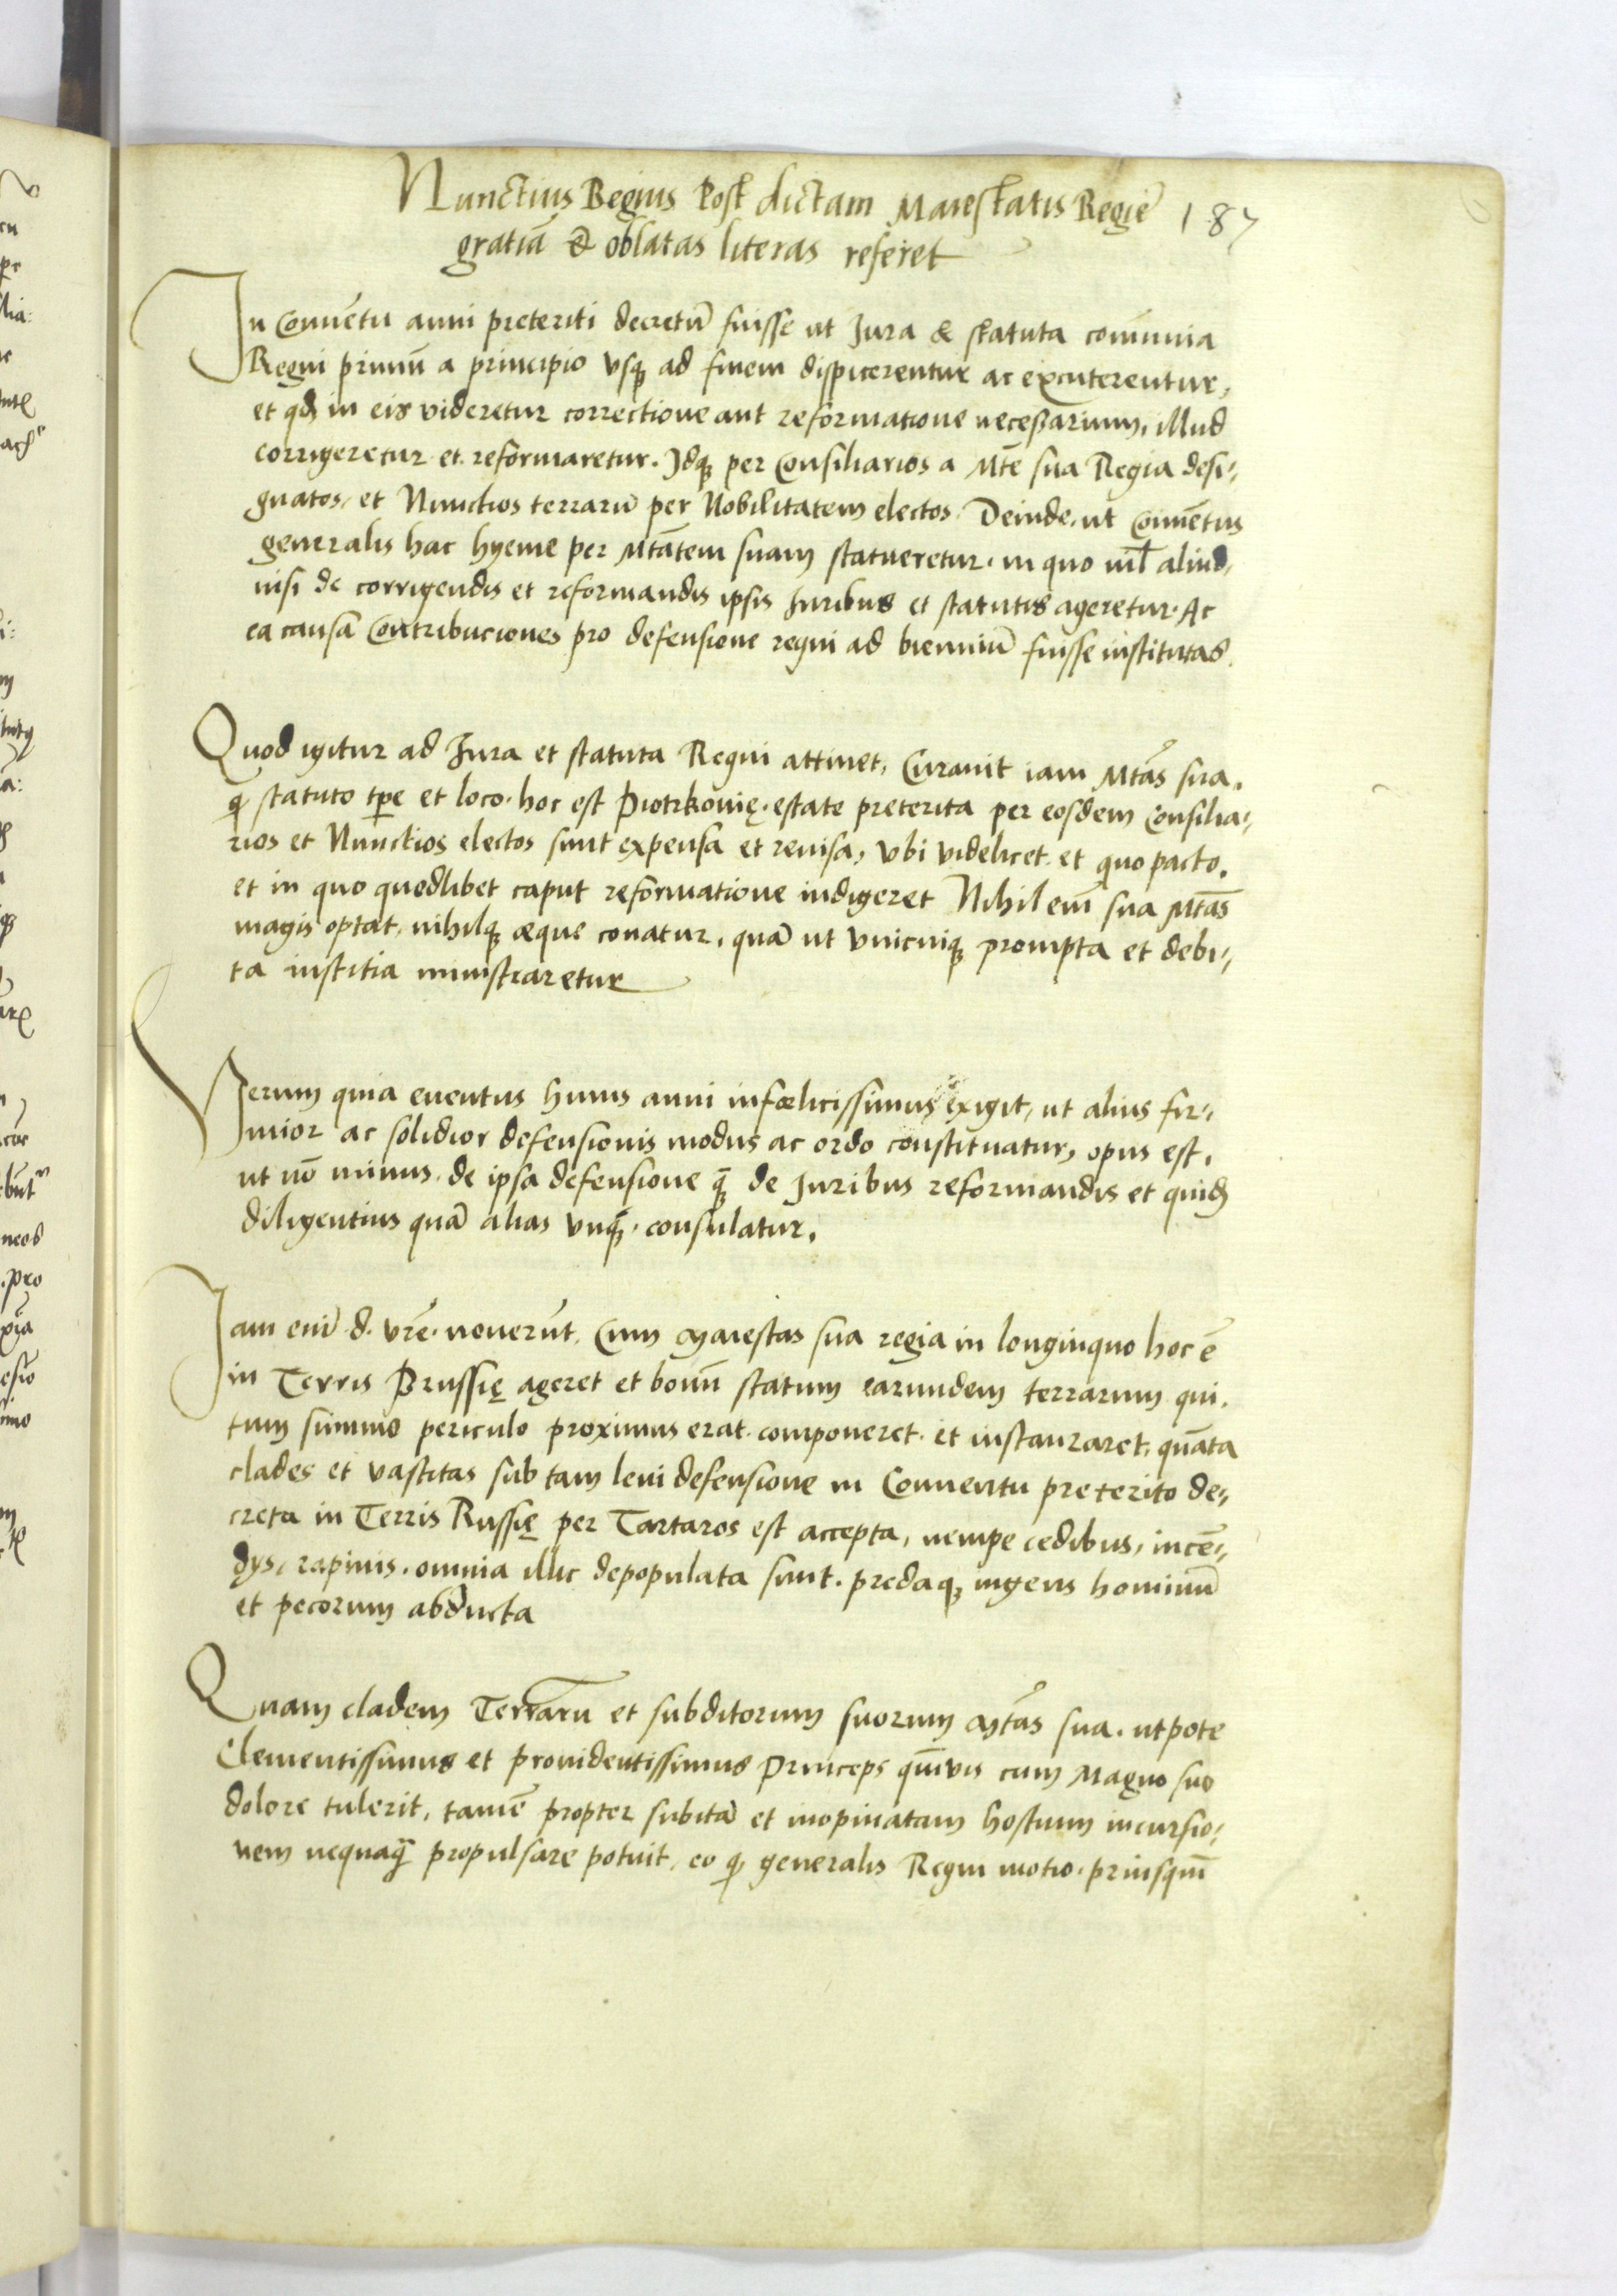 Nunctius Regius Post dictam Maiestatis Regie 187
gratiā & oblatas literas referet
In Conuētu anni preteriti decretū fuisse ut Jura & statuta comūnia
Regni primū a principio vsq₃ ad finem dispicerentur ac excuterentur,
et qđ in eis videretur correctione aut reformatione necessarium, illud
corrigeretur et reformaretur. Idq₃ per Consiliarios a Mte sua Regia desi-
gnatos, et Nunctios terrarū per Nobilitatem electos. Deinde, ut Conuētus
generalis hac hyeme per Mtatem suam statueretur, in quo nil aliud,
nisi de corrigendis et reformandis ipsis Iuribus et statutis ageretur. Ac
ea causa Contribuciones pro defensione regni ad bienniū fuisse institutas.
Quod igitur ad Jura et statuta Regni attinet, Curauit iam Mtās sua.
q̨ statuto tp̄e et loco. hoc est Piotrkouię. estate preterita per eosdem Consilia-
rios et Nunctios electos sunt expensa et reuisa, vbi videlicet et quo pacto,
et in quo quodlibet caput reformatione indigeret Nihil em̄ sua Mtās
magis optat, nihilq₃ æque conatur, quā ut vnicuiq₃ prompta et debi-
ta iustitia ministraretur
Verum quia euentus huius anni infœlicissimus exigit, ut alius fir-
mior ac solidior defensionis modus ac ordo constituatur, opus est,
ut nō minus de ipsa defensione q̄ȝ de Iuribus reformandis et quidē
diligentius quā alias vnq̄ȝ consulatur.
Iam eni d. vre. nouerūt, Cum Maiestas sua regia in longinquo hoc ē
in Terris Prussię ageret et bonū statum earundem terrarum qui
tum summo periculo proximus erat componeret et instauraret, quāta
clades et vastitas sub tam leui defensione in Conuentu preterito de-
creta in Terris Russię per Tartaros est accepta, nempe cedibus, incē-
dys, rapinis, omnia illic depopulata sunt, predaq₃ ingens hominū
et pecorum abducta
Quam cladem Terrarū et subditorum suorum Mtās sua. utpote
Clementissimus et prouidentissimus Princeps quāuis cum Magno suo
dolore tulerit, tamē propter subitā et inopinatam hostium incursio-
nem nequaq̄ȝ propulsare potuit, eo q̨ generalis Regni motio. priusquā